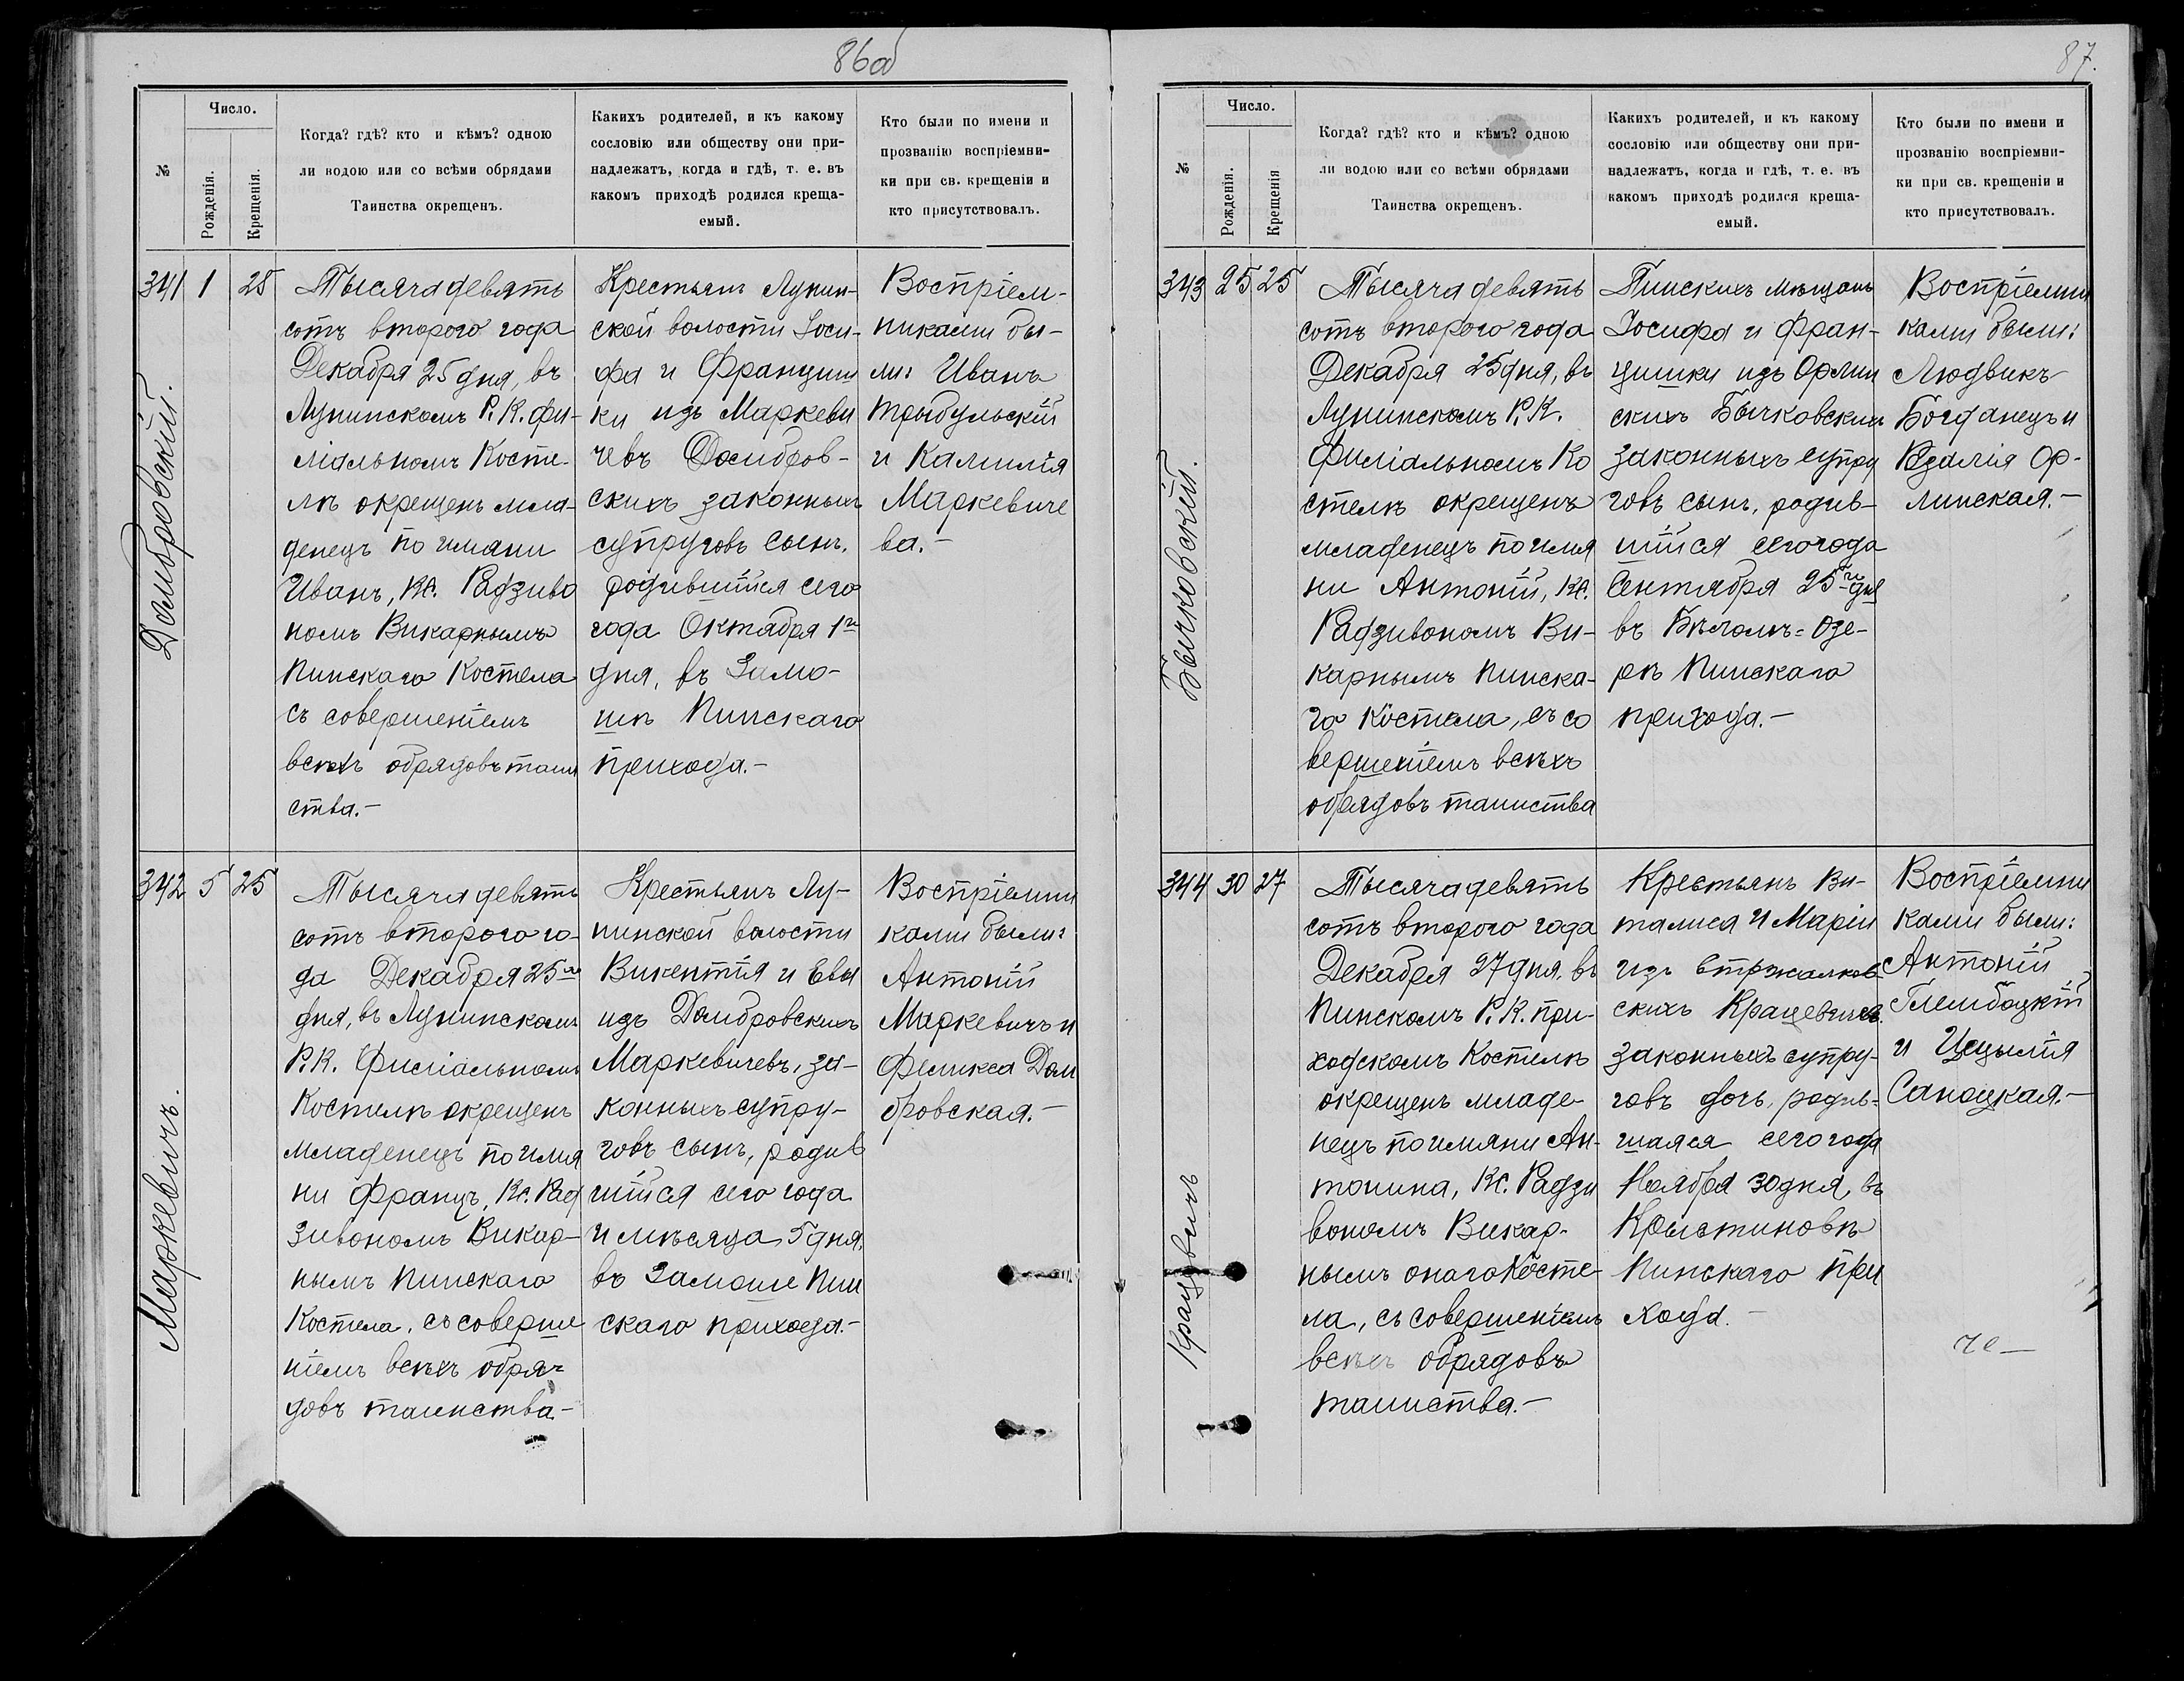 86об
№
Число.
Рожденія.
Крещенія.
Когда? гдѣ? кто и кѣмъ? одною
ли водою или со всѣми обрядами
Таинства окрещенъ.
Какихъ родителей, и къ какому
сословію или обществу они при-
надлежатъ, когда и гдѣ, т. е. въ
какомъ приходѣ родился креща-
емый.
Кто были по имени и
прозванію воспріемни-
ки при св. крещеніи и
кто присутствовалъ.
341 1 25
Домбровскій.
Тысяча девять
сотъ второго года
Декабря 25 дня, въ
Лунинскомъ Р. К. фи-
ліальномъ Косте-
лѣ окрещенъ мла-
денецъ по имяни
Иванъ, Кс. Радзиво
номъ Викарнымъ
Пинскаго Костела
съ совершеніемъ
всѣхъ обрядовъ таин
ства.-
Крестьянъ Лунин-
ской волости Іоси-
фа и Францишк
ки изъ Маркеви
чевъ Домбров-
скихъ законныхъ
супруговъ сынъ,
родившійся сего
года Октября 1го
дня, въ Замо-
шѣ Пинскаго
прихода.-
Воспріем-
никами бы-
ли: Иванъ
Трыбульскій
и Камилія
Маркевиче
ва.-
342 5 25
Маркевичъ.
Тысяча девять
сотъ второго го-
да Декабря 25го
дня, въ Лунинскомъ
Р. К. Филіальномъ
Костелѣ окрещенъ
младенецъ по имя
ни Францъ, Кс. Рад
зивономъ Викар-
нымъ Пинскаго
Костела, съ соверше
ніемъ всѣхъ обря-
довъ таинства.-
Крестьянъ Лу-
нинской волости
Викентія и Евы
изъ Домбровскихъ
Маркевичевъ, за-
конныхъ супру-
говъ сынъ, родив
шійся сего года
и мѣсяца 5 дня,
въ Замоше Пин
скаго прихода.-
Воспріемни
ками были:
Антоній
Маркевичъ и
Феликса Дом
бровская.-
87.
№
Число.
Рожденія.
Крещенія
Когда? гдѣ? кто и кѣмъ? одною
ли водою или со всѣми обрядами
Таинства окрещенъ.
Какихъ родителей, и къ какому
сословію или обществу они при-
надлежатъ, когда и гдѣ, т. е. въ
какомъ приходѣ родился креща-
емый.
Кто были по имени и
прозванію воспріемни-
ки при св. крещеніи и
кто присутствовалъ.
343 25 25
Бычковскій.
Тысяча девять
сотъ второго года
Декабря 25 дня, въ
Лунинскомъ Р. К.
Филіальномъ Ко
стелѣ окрещенъ
младенецъ по имя
ни Антоній, Кс.
Радзивономъ Ви-
карнымъ Пинска-
го Костела, съ со
вершеніемъ всѣхъ
обрядовъ таинства
Пинскихъ мѣщанъ
Іосифа и Фран-
цишки изъ Орлин
скихъ Бычковскихъ
законныхъ супру
говъ сынъ, родив-
шійся сего года
Сентября 25го дня
въ Бѣломъ=Озе-
рѣ Пинскаго
прихода.-
Воспріемни
ками были:
Людвикъ
Богданецъ и
Розалія Ор-
линская.-
344 30 27
Крацевичъ
Тысяча девять
сотъ второго года
Декабря 27 дня, въ
Пинскомъ Р. К. при-
ходскомъ Костелѣ
окрещенъ младе-
нецъ по имяни Ан-
тонина, Кс. Радзи
вономъ Викар-
нымъ онаго Косте-
ла, съ совершеніемъ
всѣхъ обрядовъ
таинства.-
Крестьянъ Ви-
талиса и Маріи
изъ Встржалков
скихъ Крацевичъ.
законныхъ супру-
говъ дочь, родив-
шаяся сего года
Ноября 30 дня, въ
Крыстиновѣ
Пинскаго при
хода.-
Воспріемни
ками были:
Антоній
Глембоцкій
и Цецылія
Саноцкая.-